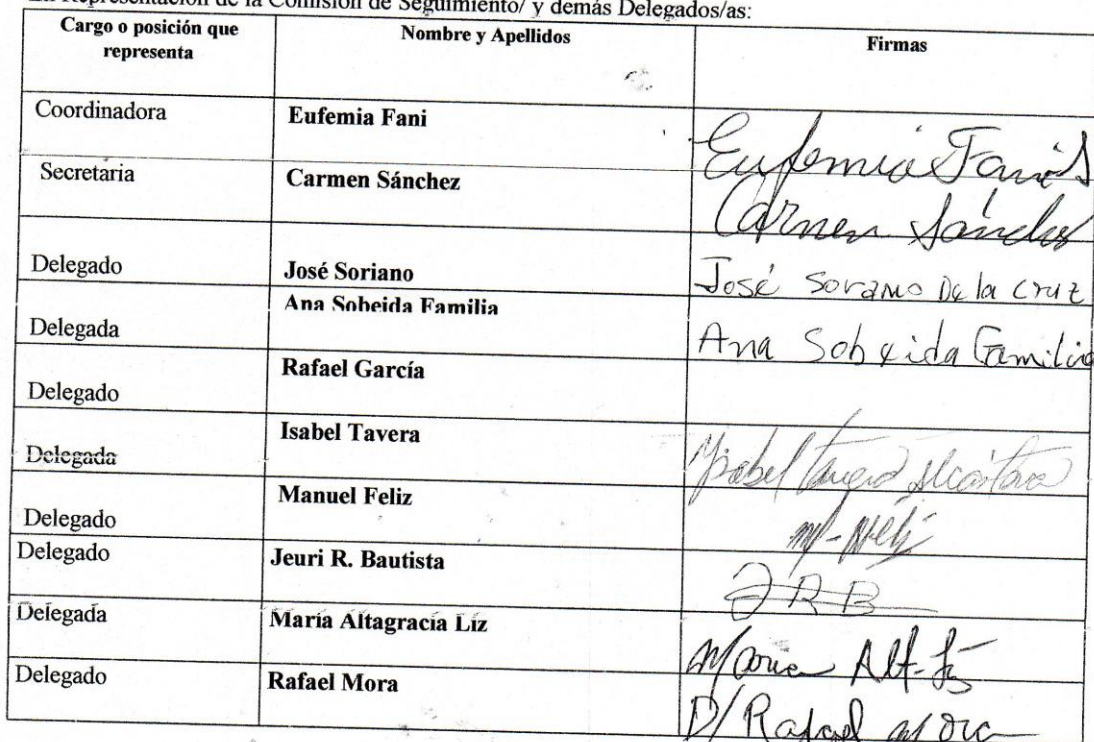 En Representación de la Comisión de Seguimiento/ y demás Delegados/as:
Cargo o posición que representa Nombre y Apellidos Firmas
Coordinadora Eufemia Fani Eufemia Fani
Secretaria Carmen Sánchez Carmen Sánchez
Delegado José Soriano José Soriano De la Cruz
Delegada Ana Sobeida Familia Ana Sobeida Familia
Delegado Rafael García
Delegada Isabel Tavera Ysabel Tavera Alcántara
Delegado Manuel Feliz
Delegado Jeuri R. Bautista JRB
Delegada María Altagracia Liz Maria Alt-
Delegado Rafael Mora D/ Rafael Mora